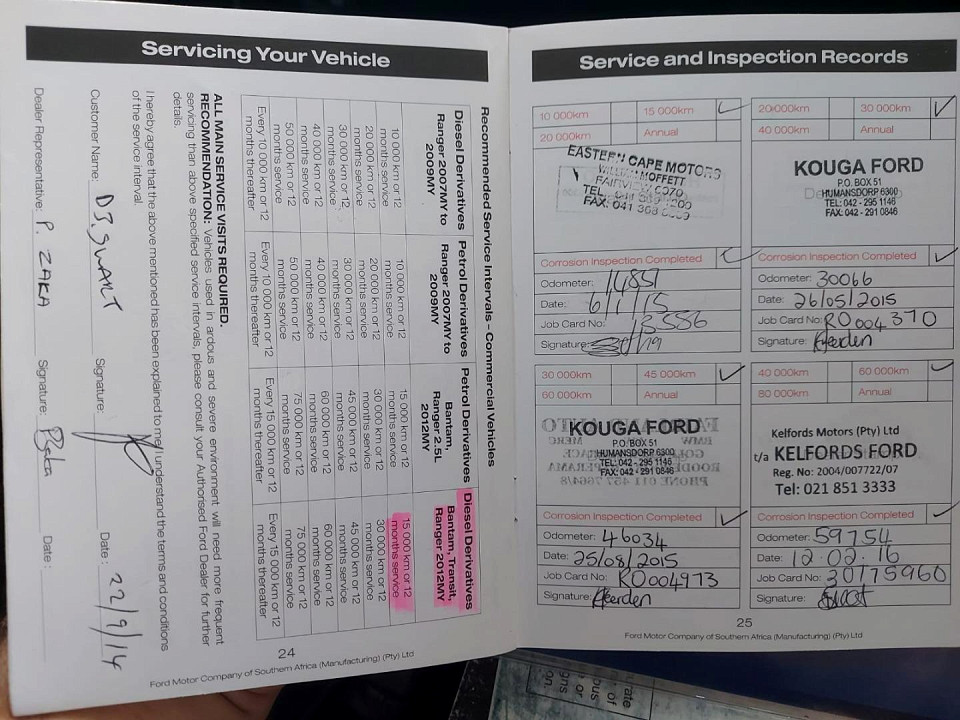 Servicing Your Vehicle
Recommended Service Intervals – Commercial Vehicles
Diesel Derivatives
Ranger 2007MY to
2009MY
10 000 km or 12
months service
20 000 km or 12
months service
30 000 km or 12
months service
40 000 km or 12
months service
50 000 km or 12
months service
Every 10 000 km or 12
months thereafter
Petrol Derivatives
Ranger 2007MY to
2009MY
10 000 km or 12
months service
20 000 km or 12
months service
30 000 km or 12
months service
40 000 km or 12
months service
50 000 km or 12
months service
Every 10 000 km or 12
months thereafter
Petrol Derivatives
Bantam,
Ranger 2.5L
2012MY
15 000 km or 12
months service
30 000 km or 12
months service
45 000 km or 12
months service
60 000 km or 12
months service
75 000 km or 12
months service
Every 15 000 km or 12
months thereafter
Diesel Derivatives
Bantam, Transit,
Ranger 2012MY
15 000 km or 12
months service
30 000 km or 12
months service
45 000 km or 12
months service
60 000 km or 12
months service
75 000 km or 12
months service
Every 15 000 km or 12
months thereafter
ALL MAIN SERVICE VISITS REQUIRED.
RECOMMENDATION: Vehicles used in arduous and severe environment will need more frequent
servicing than above specified service intervals, please consult your Authorised Ford Dealer for further
details.
I hereby agree that the above mentioned has been explained to me/I understand the terms and conditions
of the service interval.
Customer Name: D.J. SWART Signature: Date: 22/9/14
Dealer Representative: P. ZAKA Signature: Date:
24
Ford Motor Company of Southern Africa (Manufacturing) (Pty) Ltd
Service and Inspection Records
10 000km 15 000km
20 000km Annual
EASTERN CAPE MOTORS
WILLIAM MOFFETT
FAIRVIEW 6070
TEL: 041
FAX: 041 368
Corrosion Inspection Completed
Odometer: 14851
Date: 6/1/15
Job Card No: 13556
Signature:
20 000km 30 000km
40 000km Annual
KOUGA FORD
P.O. BOX 51
HUMANSDORP 6300
TEL: 042 - 295 1146
FAX: 042 - 291 0846
Corrosion Inspection Completed
Odometer: 30066
Date: 26/05/2015
Job Card No: RO004370
Signature: Heerden
30 000km 45 000km
60 000km Annual
KOUGA FORD
P.O. BOX 51
HUMANSDORP 6300
TEL: 042 - 295 1146
FAX: 042 - 291 0846
Corrosion Inspection Completed
Odometer: 46034
Date: 25/08/2015
Job Card No: RO004973
Signature: Heerden
40 000km 60 000km
80 000km Annual
Kelfords Motors (Pty) Ltd
t/a KELFORDS FORD
Reg. No: 2004/007722/07
Tel: 021 851 3333
Corrosion Inspection Completed
Odometer: 59754
Date: 12.02.16
Job Card No: 30175960
Signature:
25
Ford Motor Company of Southern Africa (Manufacturing) (Pty) Ltd